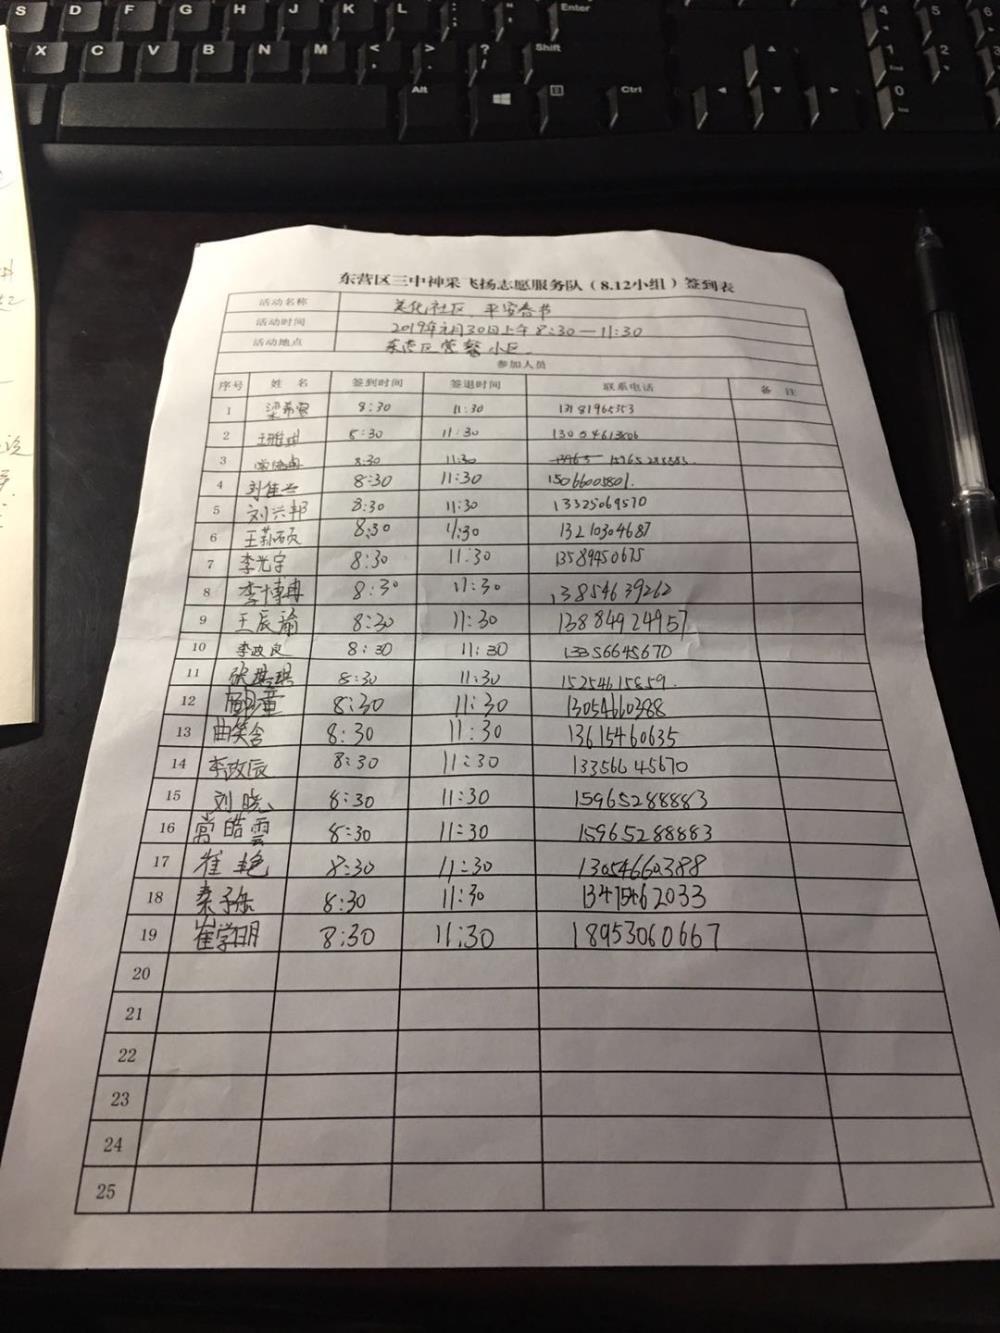 S D F G H J K L : " Enter
X C V B N M < > ? Shift
; , . /
Alt Ctrl
4 5 6
1 2 3
End
0
Ins
东营区三中神采飞扬志愿服务队（8.12小组）签到表
活动名称 美化社区、平安春节
活动时间 2019年元月30日上午8:30—11:30
活动地点 东营区 小区
参加人员
序号 姓 名 签到时间 签退时间 联系电话 备 注
1 8:30 11:30 13181965353
2 8:30 11:30
3 8:30 11:30 15965288883
4 刘佳兴 8:30 11:30 15066005801.
5 刘兴邦 8:30 11:30 13325069570
6 8:30 11:30 13210304687
7 李光宇 8:30 11:30 13589450675
8 李博冉 8:30 11:30 13854639262
9 王辰瑜 8:30 11:30 13884924957
10 李政良 8:30 11:30 13356645670
11 张琪琪 8:30 11:30 15254615859.
12 8:30 11:30 13054660388
13 曲笑含 8:30 11:30 13615460635
14 李政辰 8:30 11:30 13356645670
15 刘晓 8:30 11:30 15965288883
16 常皓雲 8:30 11:30 15965288883
17 崔艳 8:30 11:30 13054660388
18 桑子乐 8:30 11:30 13475462033
19 崔学明 8:30 11:30 18953060667
20
21
22
23
24
25